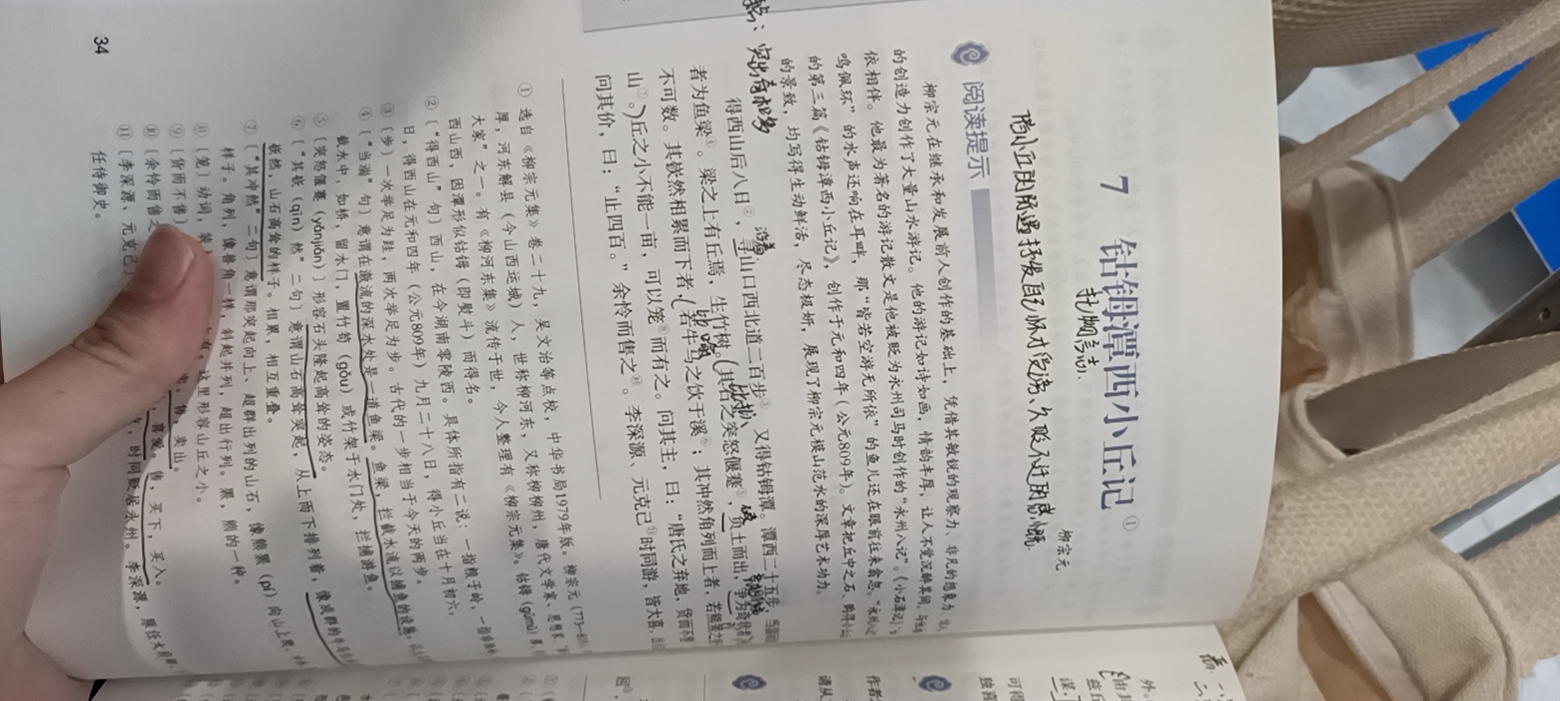 借小丘的际遇抒发自己怀才受谤、久贬不迁的感慨
托物言志.
7 钴鉧潭西小丘记①
柳宗元
阅读提示
柳宗元在继承和发展前人创作的基础上，凭借其敏锐的观察力、非凡的想象力、
的创造力创作了大量山水游记。他的游记如诗如画，情韵丰厚，让人不觉沉醉其间，与他
依相伴。他最为著名的游记散文是他被贬为永州司马时创作的“永州八记”。《小石潭记》
鸣佩环”的水声还响在耳畔，那“皆若空游无所依”的鱼儿还在眼前往来翕忽。“永州八记”
的第三篇《钴鉧潭西小丘记》，创作于元和四年（公元809年）。文章把丘中之石、
的景致，均写得生动鲜活，尽态极妍，展现了柳宗元模山范水的深厚艺术功力。
突出奇石多
得西山后八日②，寻山口西北道二百步③，又得钴鉧潭。潭西二十五步，当湍
者为鱼梁④。梁之上有丘焉，生竹树。其石之突怒偃蹇⑤，负土而出，争为奇状者
不可数。其嵚然相累而下者，若牛马之饮于溪⑥；其冲然角列而上者，若熊罴之
山⑦。丘之小不能一亩，可以笼⑧而有之。问其主，曰：“唐氏之弃地，货而不售
问其价，曰：“止四百。”余怜而售之⑩。李深源、元克己⑪时同游，皆大喜，
① 选自《柳宗元集》卷二十九，吴文治等点校，中华书局1979年版。柳宗元（773—
厚，河东解县（今山西运城）人，世称柳河东，又称柳柳州，唐代文学家、思想家，
大家”之一。有《柳河东集》流传于世，今人整理有《柳宗元集》。钴鉧（gǔmǔ）潭，
西山西，因潭形似钴鉧（即熨斗）而得名。
② 〔“得西山”句〕西山，在今湖南零陵西。具体所指有二说：一指粮子岭，一指
日，得西山在元和四年（公元809年）九月二十八日，得小丘当在十月初六。
③ 〔步〕一次举足为跬，两次举足为步。古代的一步相当于今天的两步。
④ 〔“当湍”句〕意谓在激流的深水处是一道鱼梁。鱼梁，拦截水流以捕鱼的设施，
截水中，如桥，留水门，置竹笱（gǒu）或竹架于水门处，拦捕游鱼。
⑤ 〔突怒偃蹇（yǎnjiǎn）〕形容石头隆起高耸的姿态。
⑥ 〔“其嵚（qīn）然”二句〕意谓山石高耸突起，从上而下排列着，像成群的牛马在
嵚然，山石高耸的样子。相累，相互重叠。
⑦ 〔“其冲然”二句〕意谓那突起向上、超群出列的山石，像熊罴（pí）向山上爬，
样子。角列，像兽角一样，斜起并列，超出行列。罴，熊的一种。
⑧ 〔笼〕动词，装 占有。这里形容山丘之小。
⑨ 〔货而不售〕 卖。售，卖出。
⑩ 〔余怜而售之 喜爱。售，买下，买入。
⑪ 〔李深源、元克己〕 时同贬居永州。李深源，原任太府卿
任侍御史。
34